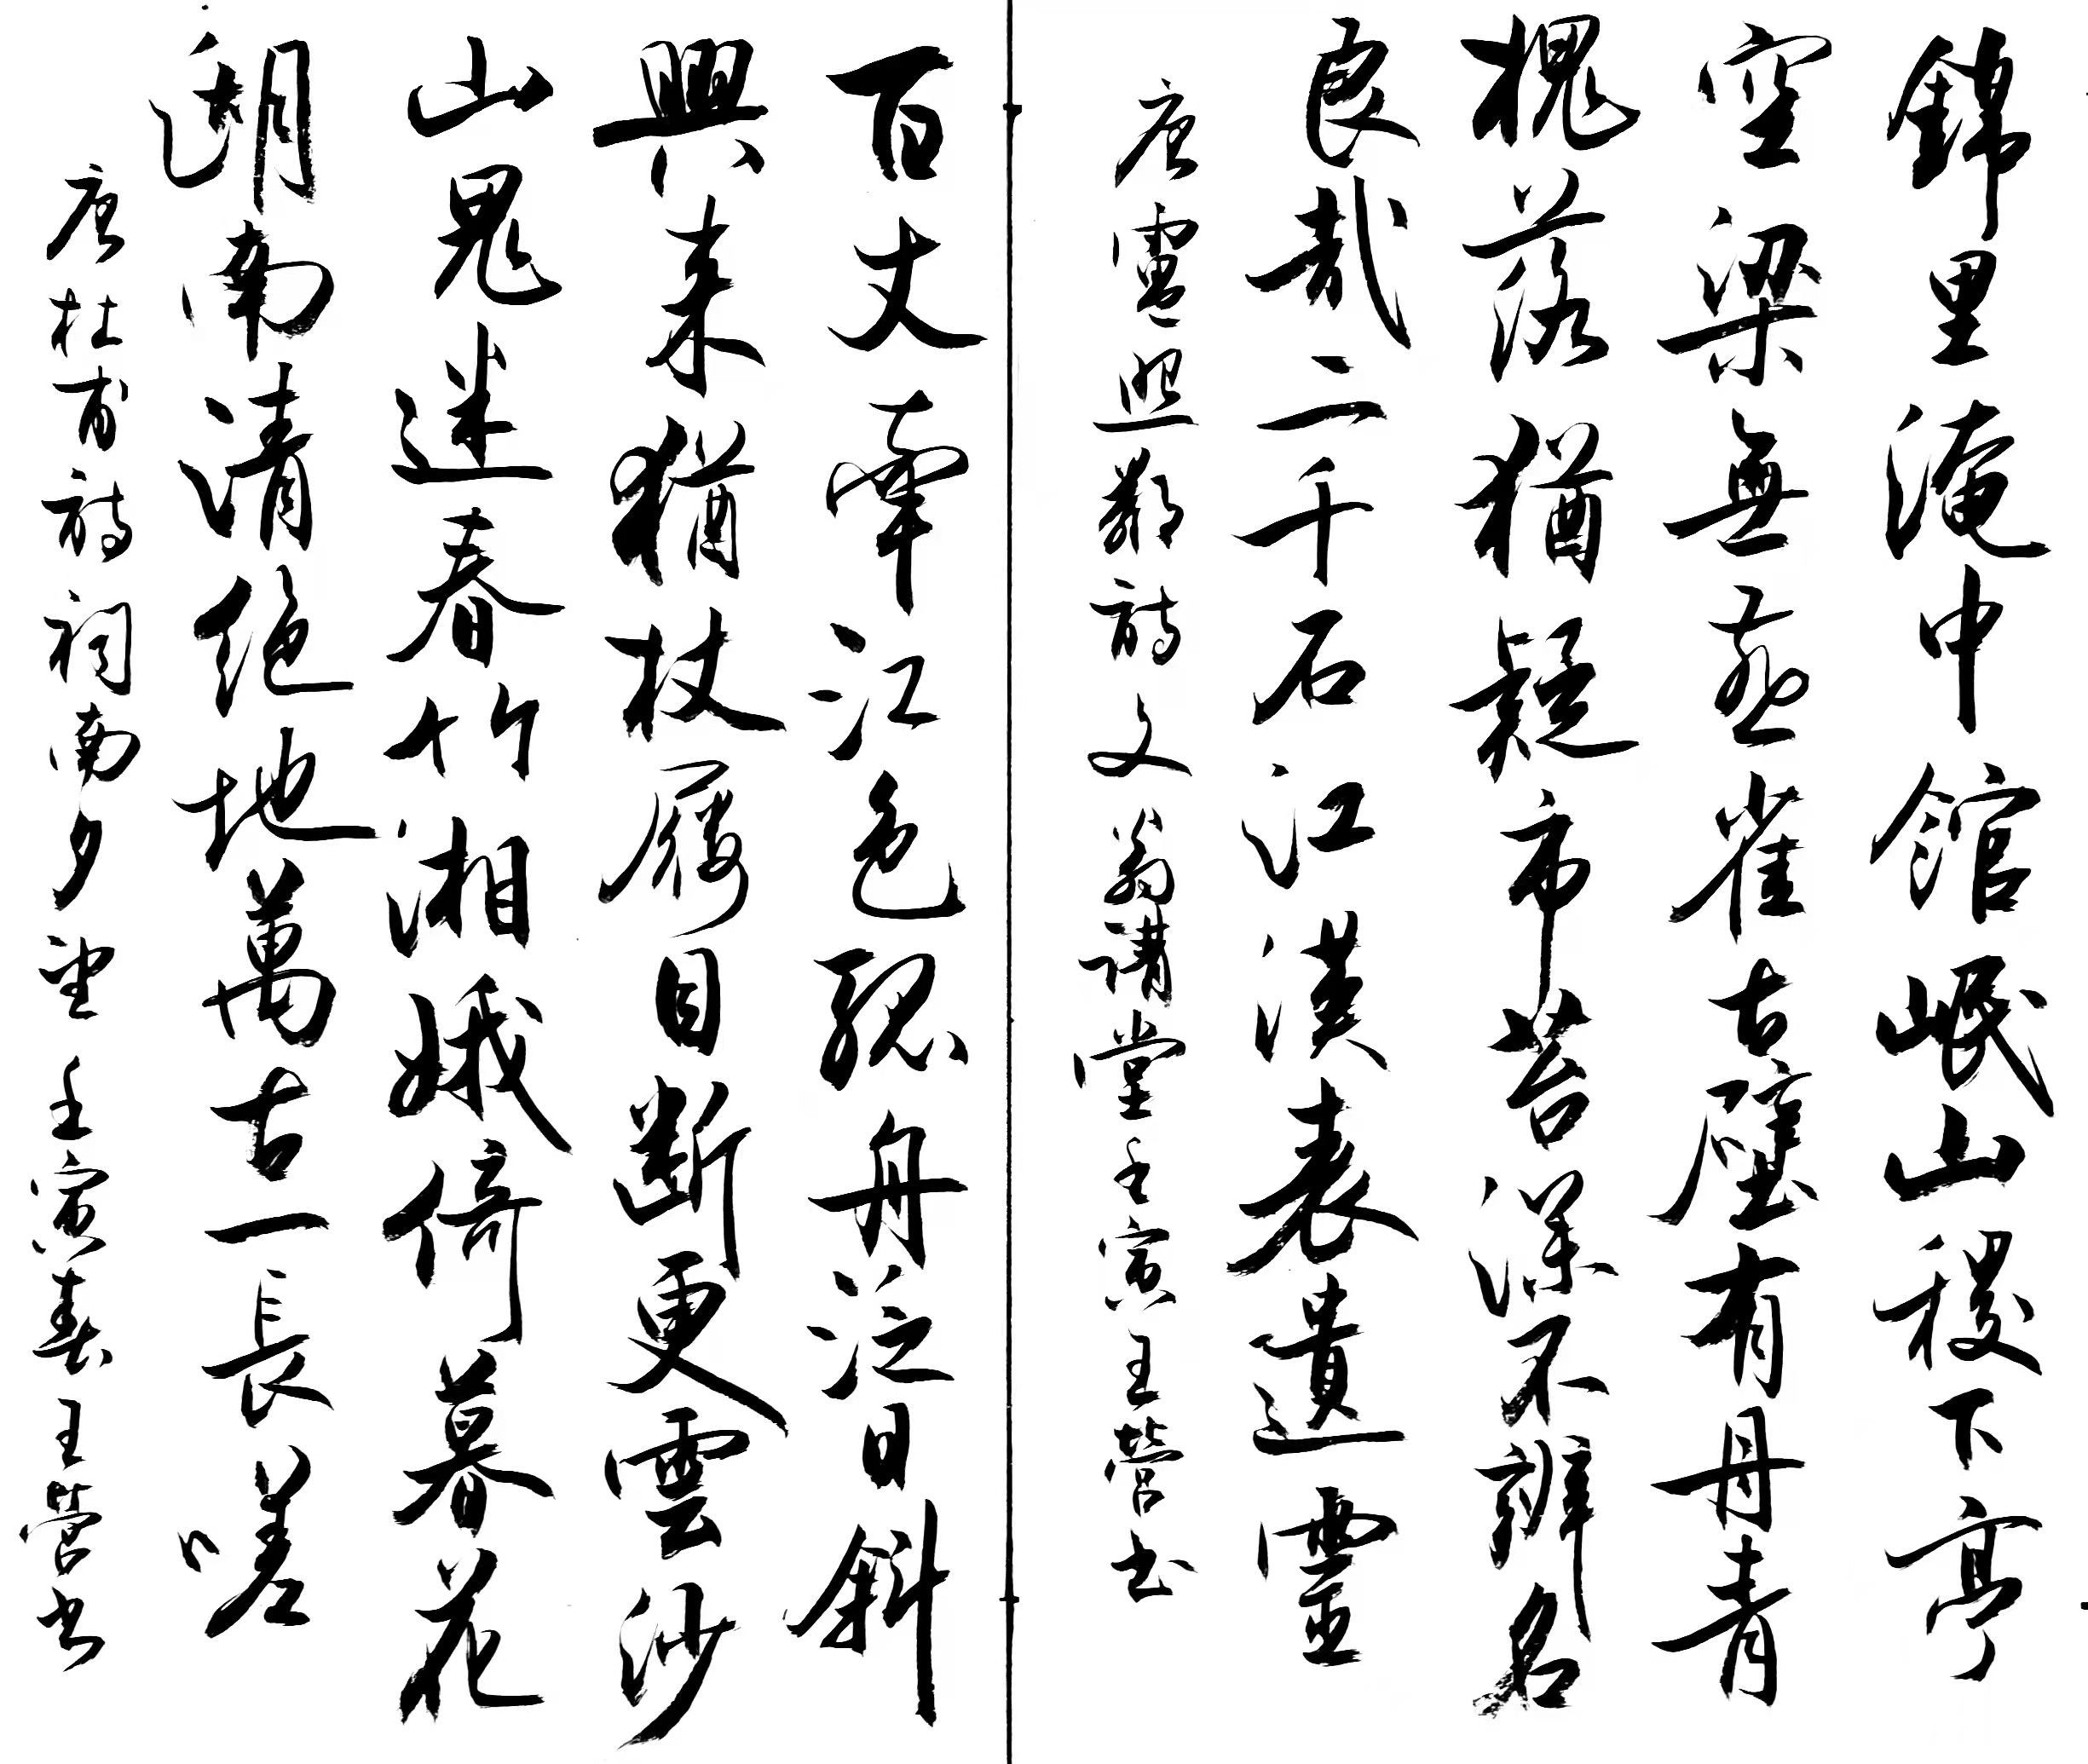 錦里淹中館岷山稷下亭
空梁無燕雀古壁有丹青
槐落猶疑市苔深不辨名
良哉二千石江漢表遺靈
唐盧照鄰詩文翁講堂壬寅王營书
百丈牽江色孤舟泛日斜
興來猶杖屨目斷更雲沙
山鬼迷春竹湘娥倚暮花
湖南清絕地萬古一長嗟
唐杜甫詩祠南夕望壬寅春王營书